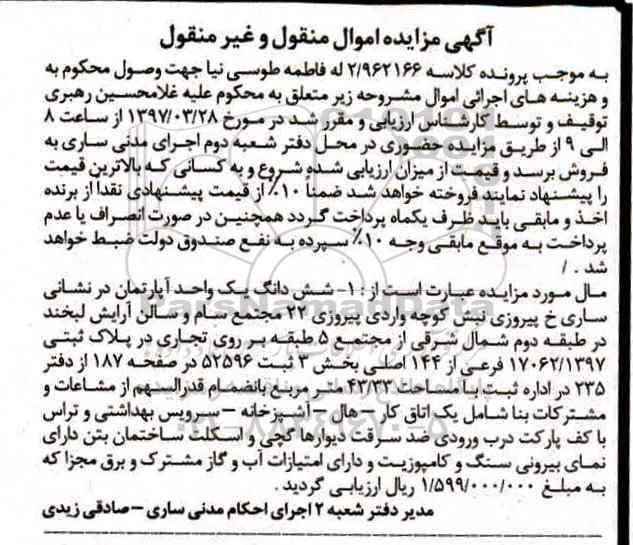 آگهی مزایده اموال منقول و غیر منقول
به موجب پرونده کلاسه ۲/۹۶۲۱۶۶ له فاطمه طوسی نیا جهت وصول محکوم به
و هزینه های اجرائی اموال مشروحه زیر متعلق به محکوم علیه غلامحسین رهبری
توقیف و توسط کارشناس ارزیابی و مقرر شد در مورخ ۱۳۹۷/۰۳/۲۸ از ساعت ۸
الی ۹ از طریق مزایده حضوری در محل دفتر شعبه دوم اجرای مدنی ساری به
فروش برسد و قیمت از میزان ارزیابی شده شروع و به کسانی که بالاترین قیمت
را پیشنهاد نمایند فروخته خواهد شد ضمنا ۱۰٪ از قیمت پیشنهادی نقدا از برنده
اخذ و مابقی باید ظرف یکماه پرداخت گردد همچنین در صورت انصراف یا عدم
پرداخت به موقع مابقی وجه ۱۰٪ سپرده به نفع صندوق دولت ضبط خواهد
شد . /
مال مورد مزایده عبارت است از : ۱- شش دانگ یک واحد آپارتمان در نشانی
ساری خ پیروزی نبش کوچه واردی پیروزی ۲۲ مجتمع سام و سالن آرایش لبخند
در طبقه دوم شمال شرقی از مجتمع ۵ طبقه بر روی تجاری در پلاک ثبتی
۱۷۰۶۲/۱۳۹۷ فرعی از ۱۴۴ اصلی بخش ۳ ثبت ۵۲۵۹۶ در صفحه ۱۸۷ از دفتر
۲۳۵ در اداره ثبت با مساحت ۴۳/۳۳ متر مربع بانضمام قدرالسهم از مشاعات و
مشترکات بنا شامل یک اتاق کار – هال – آشپزخانه – سرویس بهداشتی و تراس
با کف پارکت درب ورودی ضد سرقت دیوارها گچی و اسکلت ساختمان بتن دارای
نمای بیرونی سنگ و کامپوزیت و دارای امتیازات آب و گاز مشترک و برق مجزا که
به مبلغ ۱/۵۹۹/۰۰۰/۰۰۰ ریال ارزیابی گردید .
مدیر دفتر شعبه ۲ اجرای احکام مدنی ساری – صادقی زیدی
ParsNamadData